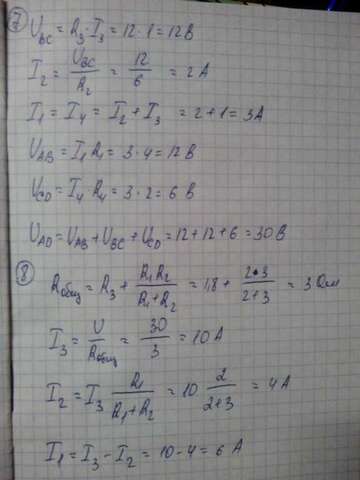 7) U_BC = R_3 · I_3 = 12 · 1 = 12 В
I_2 = U_BC / R_2 = 12 / 6 = 2 А
I_1 = I_4 = I_2 + I_3 = 2 + 1 = 3А
U_AB = I_1 R_1 = 3 · 4 = 12 В
U_CD = I_4 · R_4 = 3 · 2 = 6 В
U_AD = U_AB + U_BC + U_CD = 12 + 12 + 6 = 30 В
8) R_общ = R_3 + R_1 R_2 / R_1 + R_2 = 1,8 + 2·3 / 2+3 = 3 Ом
I_3 = U / R_общ = 30 / 3 = 10 А
I_2 = I_3 R_1 / R_1 + R_2 = 10 2 / 2+3 = 4 А
I_1 = I_3 - I_2 = 10 - 4 = 6 А